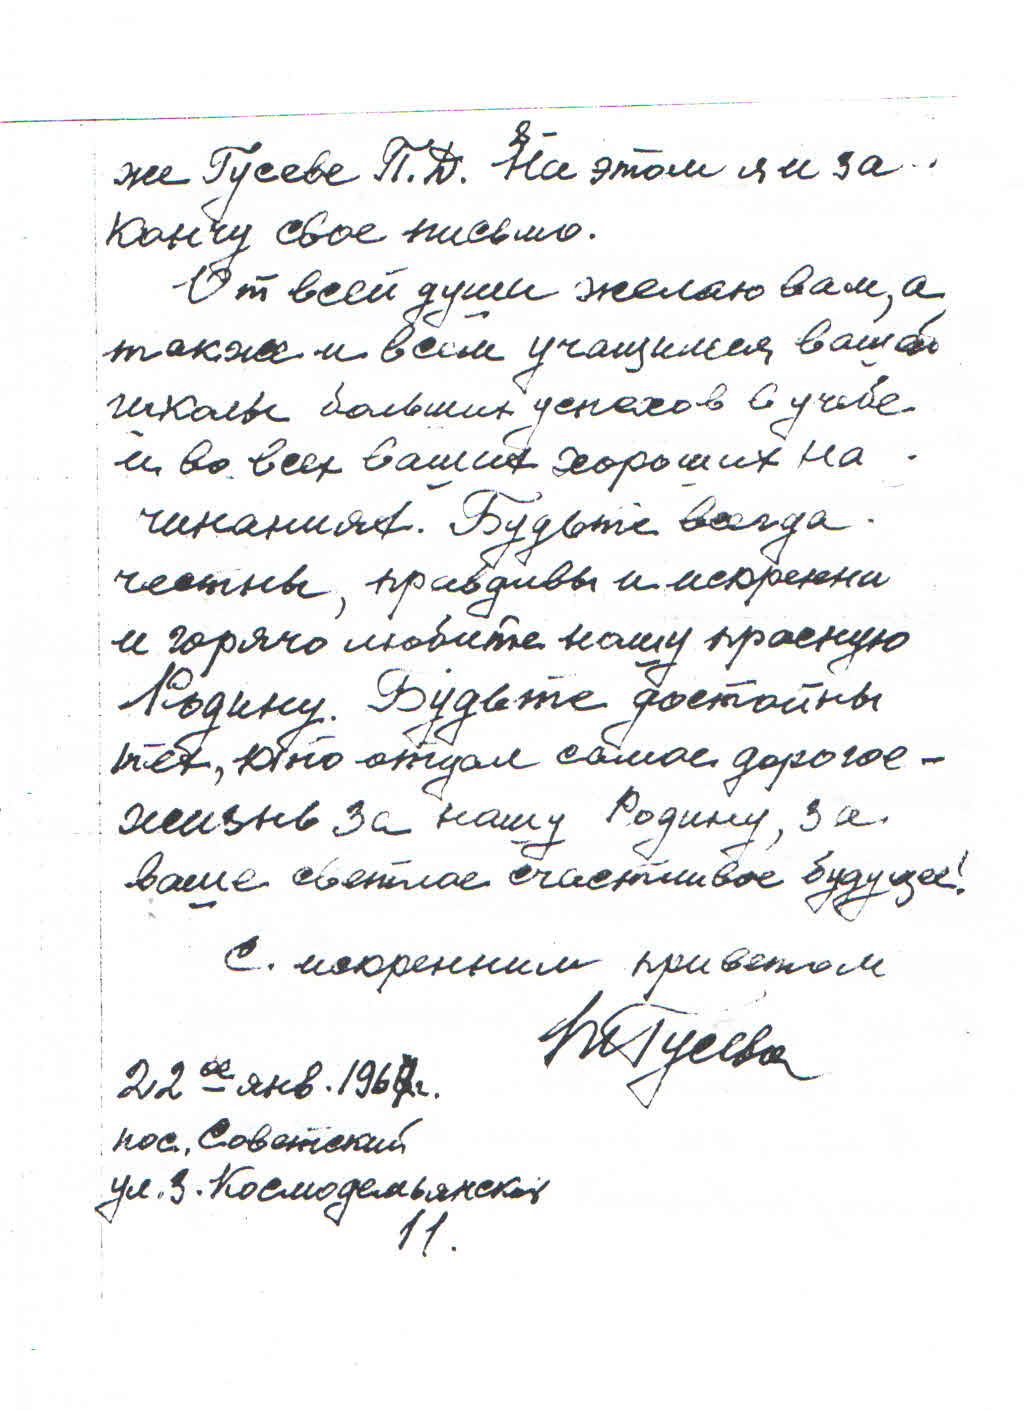 8-
же Гусеве П.Д. На этом я и за
кончу свое письмо.
От всей души желаю вам, а
также и всем учащимся вашей
школы больших успехов в учебе
и во всех ваших хороших на
чинаниях. Будьте всегда
честны, правдивы и искренни
и горячо любите нашу красную
Родину. Будьте достойны
тех, кто отдал самое дорогое –
жизнь за нашу Родину, за
ваше светлое счастливое будущее!
С. искренним приветом
Гусева
22ое янв. 1967г.
пос. Советский
ул. З. Космодемьянской
11.